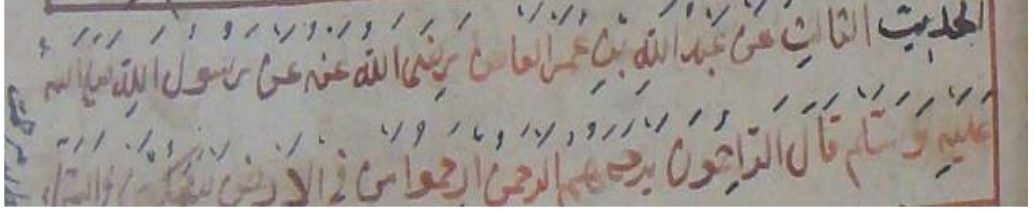 الحديث الثالث عن عبد الله بن عمر العاص رضى الله عنه عن رسول الله صلى الله
عليه وسلم قال الراحمون يرحمهم الرحمن ارحموا من فى الارض يرحمكم من فى السماء